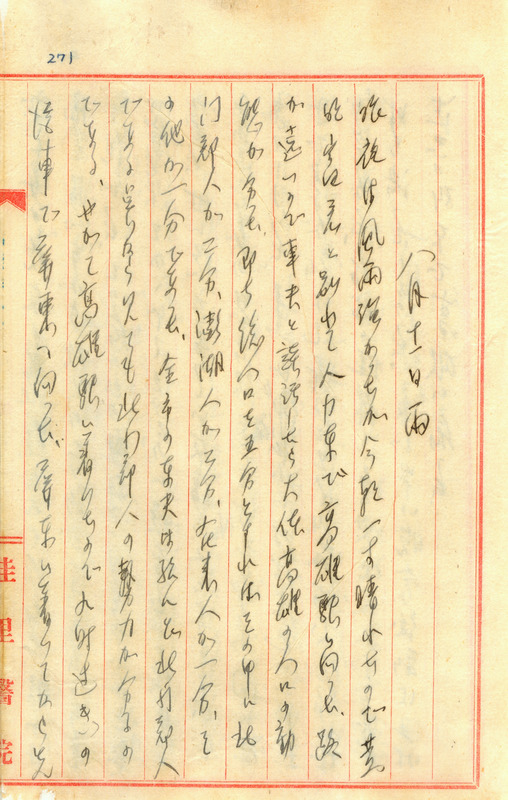 271
八月十一日 雨
昨夜は風雨強かったが今朝一寸晴れたので
君と別れて人力車で高雄駅に向った。路
が遠いので車夫と談話したら大体高雄の人口の動
態が分った。即ち総人口を五分とすればその中に北
門郡人が二分、澎湖人が二分、在来人が一分、そ
の他が一分であった。全市の車夫は殆んど北門郡人
である 見ても北門郡人の勢力が分るの
である、やがて高雄駅に着いたので九時過ぎの
汽車で屏東へ向った。屏東に着いてから先
佳里醫院